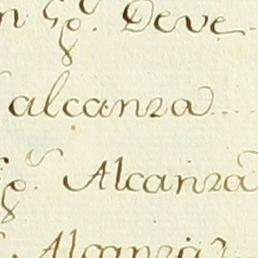 n Sg.e Deve
alcanza
Sg. Alcanza
Alcanzia